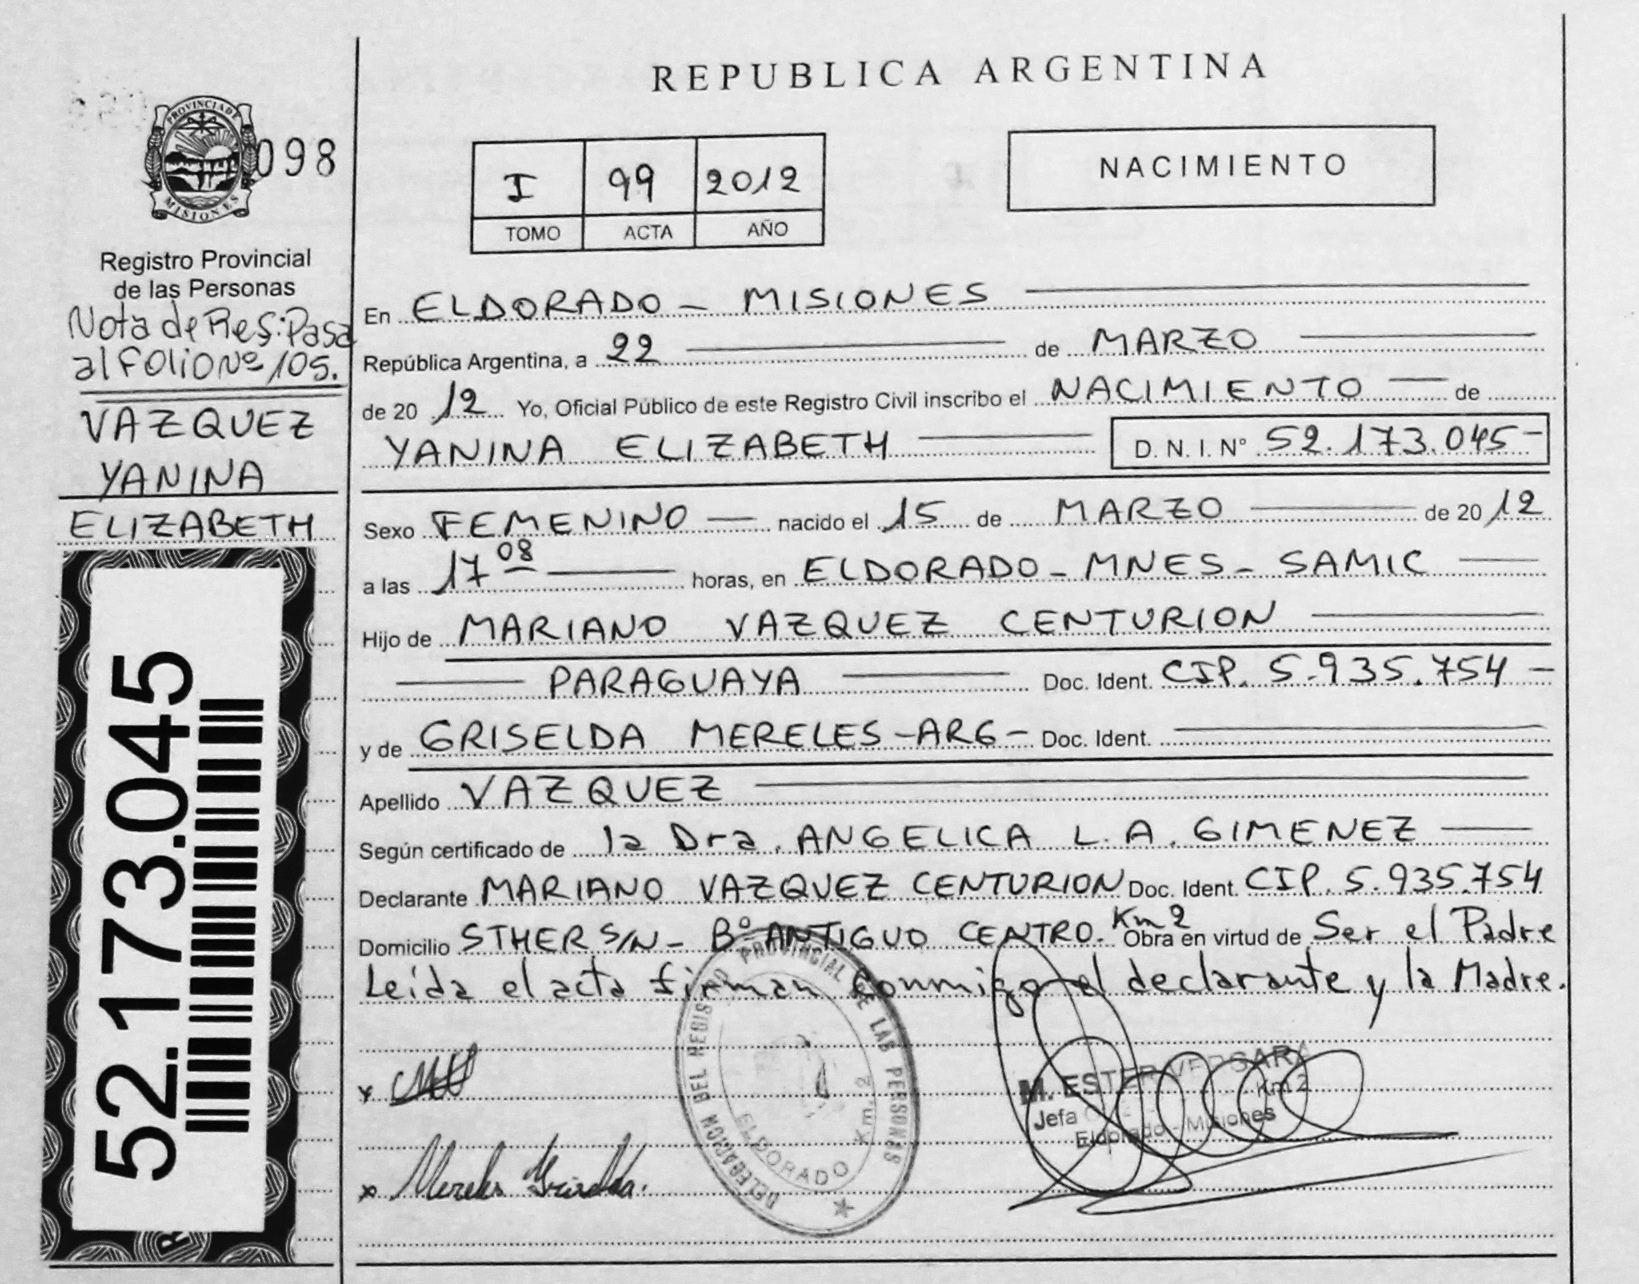 REPUBLICA ARGENTINA
PROVINCIA DE
MISIONES
098
I 99 2012
TOMO ACTA AÑO
NACIMIENTO
Registro Provincial
de las Personas
Nota de Res: Pasa
al folio Nº 105.
VAZQUEZ
YANINA
ELIZABETH
52.173.045
En ELDORADO - MISIONES
República Argentina, a 22 de MARZO
de 20 12 Yo, Oficial Público de este Registro Civil inscribo el NACIMIENTO de
YANINA ELIZABETH D. N. I. Nº 52.173.045-
Sexo FEMENINO nacido el 15 de MARZO de 20 12
a las 17 08 horas, en ELDORADO - MNES - SAMIC
Hijo de MARIANO VAZQUEZ CENTURION
PARAGUAYA Doc. Ident. CIP. 5.935.754 -
y de GRISELDA MERELES - ARG - Doc. Ident.
Apellido VAZQUEZ
Según certificado de la Dra. ANGELICA L. A. GIMENEZ
Declarante MARIANO VAZQUEZ CENTURION Doc. Ident. CIP. 5.935.754
Domicilio STHER S/N - Bº ANTIGUO CENTRO. Km 2 Obra en virtud de Ser el Padre
Leída el acta firman conmigo el declarante y la Madre.
DELEGACION DEL REGISTRO PROVINCIAL DE LAS PERSONAS
ELDORADO Km. 2
M. ESTER VERSARA
Jefa Km 2
Eldorado - Misiones
x
x Mereles Griselda.